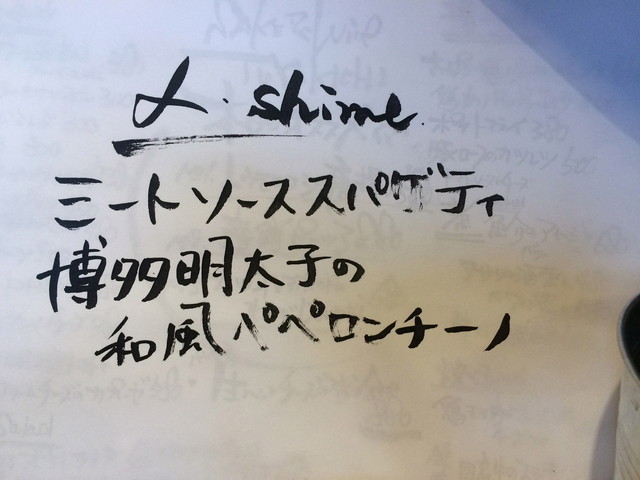 〆・shime.
ミートソーススパゲティ
博多明太子の
和風パペロンチーノ